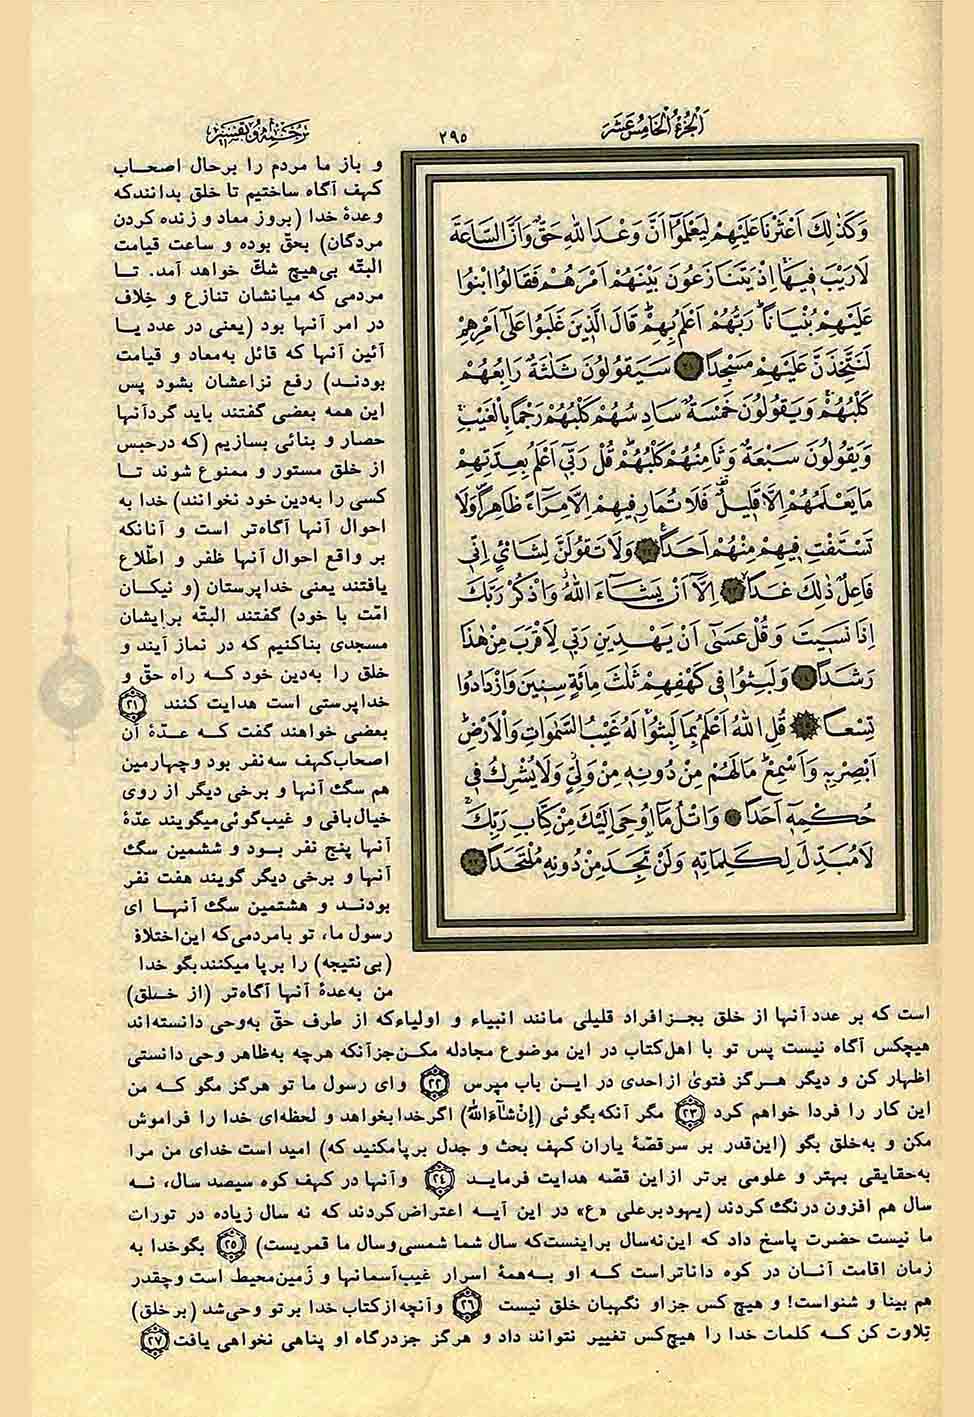 اَلْجُزْءُ الْخامِسُ عَشَرَ
٢٩٥
ترجمه و تفسیر
وَكَذٰلِكَ اَعْثَرْنا عَلَيْهِمْ لِيَعْلَمُوٓا اَنَّ وَعْدَ اللّٰهِ حَقٌّ وَاَنَّ السّاعَةَ
لا رَيْبَ فيها اِذْ يَتَنازَعُونَ بَيْنَهُمْ اَمْرَهُمْ فَقالُوا ابْنُوا
عَلَيْهِمْ بُنْيانًا رَبُّهُمْ اَعْلَمُ بِهِمْ قالَ الَّذينَ غَلَبُوا عَلىٰٓ اَمْرِهِمْ
لَنَتَّخِذَنَّ عَلَيْهِمْ مَسْجِدًا ٢١ سَيَقُولُونَ ثَلٰثَةٌ رابِعُهُمْ
كَلْبُهُمْ وَيَقُولُونَ خَمْسَةٌ سادِسُهُمْ كَلْبُهُمْ رَجْمًا بِالْغَيْبِ
وَيَقُولُونَ سَبْعَةٌ وَثامِنُهُمْ كَلْبُهُمْ قُلْ رَبّىٓ اَعْلَمُ بِعِدَّتِهِمْ
ما يَعْلَمُهُمْ اِلّا قَليلٌ فَلا تُمارِ فيهِمْ اِلّا مِرآءً ظاهِرًا وَلا
تَسْتَفْتِ فيهِمْ مِنْهُمْ اَحَدًا ٢٢ وَلا تَقُولَنَّ لِشَاىْءٍ اِنّى
فاعِلٌ ذٰلِكَ غَدًا ٢٣ اِلّآ اَنْ يَشآءَ اللّٰهُ وَاذْكُرْ رَبَّكَ
اِذا نَسيتَ وَقُلْ عَسىٰٓ اَنْ يَهْدِيَنِ رَبّى لِاَقْرَبَ مِنْ هٰذا
رَشَدًا ٢٤ وَلَبِثُوا فى كَهْفِهِمْ ثَلٰثَ مِائَةٍ سِنينَ وَازْدادُوا
تِسْعًا ٢٥ قُلِ اللّٰهُ اَعْلَمُ بِما لَبِثُوا لَهُ غَيْبُ السَّمٰواتِ وَالْاَرْضِ
اَبْصِرْ بِهٖ وَاَسْمِعْ ما لَهُمْ مِنْ دُونِهٖ مِنْ وَلِىٍّ وَلا يُشْرِكُ فى
حُكْمِهٖٓ اَحَدًا ٢٦ وَاتْلُ مآ اُوحِىَ اِلَيْكَ مِنْ كِتابِ رَبِّكَ
لا مُبَدِّلَ لِكَلِماتِهٖ وَلَنْ تَجِدَ مِنْ دُونِهٖ مُلْتَحَدًا ٢٧
و باز ما مردم را برحال اصحاب
کهف آگاه ساختیم تا خلق بدانندکه
وعدهٔ خدا (بروز معاد و زنده کردن
مردگان) بحقّ بوده و ساعت قیامت
البتّه بی‌هیچ شكّ خواهد آمد. تا
مردمی که میانشان تنازع و خِلاف
در امر آنها بود (یعنی در عدد یا
آئین آنها که قائل به‌معاد و قیامت
بودند) رفع نزاعشان بشود پس
این همه بعضی گفتند باید گردآنها
حصار و بنائی بسازیم (که درحبس
از خلق مستور و ممنوع شوند تا
کسی را به‌دین خود نخوانند) خدا به
احوال آنها آگاه‌تر است و آنانکه
بر واقع احوال آنها ظفر و اطّلاع
یافتند یعنی خداپرستان (و نیکان
امّت با خود) گفتند البتّه برایشان
مسجدی بناکنیم که در نماز آیند و
خلق را به‌دین خود که راه حقّ و
خداپرستی است هدایت کنند ٢١
بعضی خواهند گفت که عدّهٔ آن
اصحاب‌کهف سه‌نفر بود وچهارمین
هم سگ آنها و برخی دیگر از روی
خیال‌بافی و غیب‌گوئی‌میگویند عدّهٔ
آنها پنج نفر بود و ششمین سگ
آنها و برخی دیگر گویند هفت نفر
بودند و هشتمین سگ آنها ای
رسول ما، تو بامردمی‌که این‌اختلاف
(بی‌نتیجه) را برپا میکنندبگو خدا
من به‌عدهٔ آنها آگاه‌تر (از خلق)
است که بر عدد آنها از خلق بجز افراد قلیلی مانند انبیاء و اولیاءکه از طرف حقّ به‌وحی دانسته‌اند
هیچکس آگاه نیست پس تو با اهل‌کتاب در این موضوع مجادله مکن‌جزآنکه هرچه به‌ظاهر وحی دانستی
اظهار کن و دیگر هرگز فتویٰ ازاحدی در این باب مپرس ٢٢ وای رسول ما تو هرگز مگو که من
این کار را فردا خواهم کرد ٢٣ مگر آنکه‌بگوئی (اِنْ‌شآءَ‌اللّٰهُ) اگرخدابخواهد و لحظه‌ای خدا را فراموش
مکن و به‌خلق بگو (این‌قدر بر سرقصّهٔ یاران کهف بحث و جدل برپامکنید که) امید است خدای من مرا
به‌حقایقی بهتر و علومی برتر ازاین قصّه هدایت فرماید ٢٤ وآنها در کهف کوه سیصد سال، نه
سال هم افزون درنگ کردند (یهودبرعلی «ع» در این آیه اعتراض‌کردند که نه سال زیاده در تورات
ما نیست حضرت پاسخ داد که این‌نه‌سال براینست‌که سال شما شمسی‌وسال ما قمریست) ٢٥ بگوخدا به
زمان اقامت آنان در کوه داناتراست که او به‌همهٔ اسرار غیب‌آسمانها و زَمین‌محیط است وچقدر
هم بینا و شنواست! و هیچ کس جزاو نگهبان خلق نیست ٢٦ وآنچه‌ازکتاب خدا برتو وحی‌شد (برخلق)
تِلاوت کن که کلمات خدا را هیچ‌کس تغییر نتواند داد و هرگز جزدرگاه او پناهی نخواهی یافت ٢٧